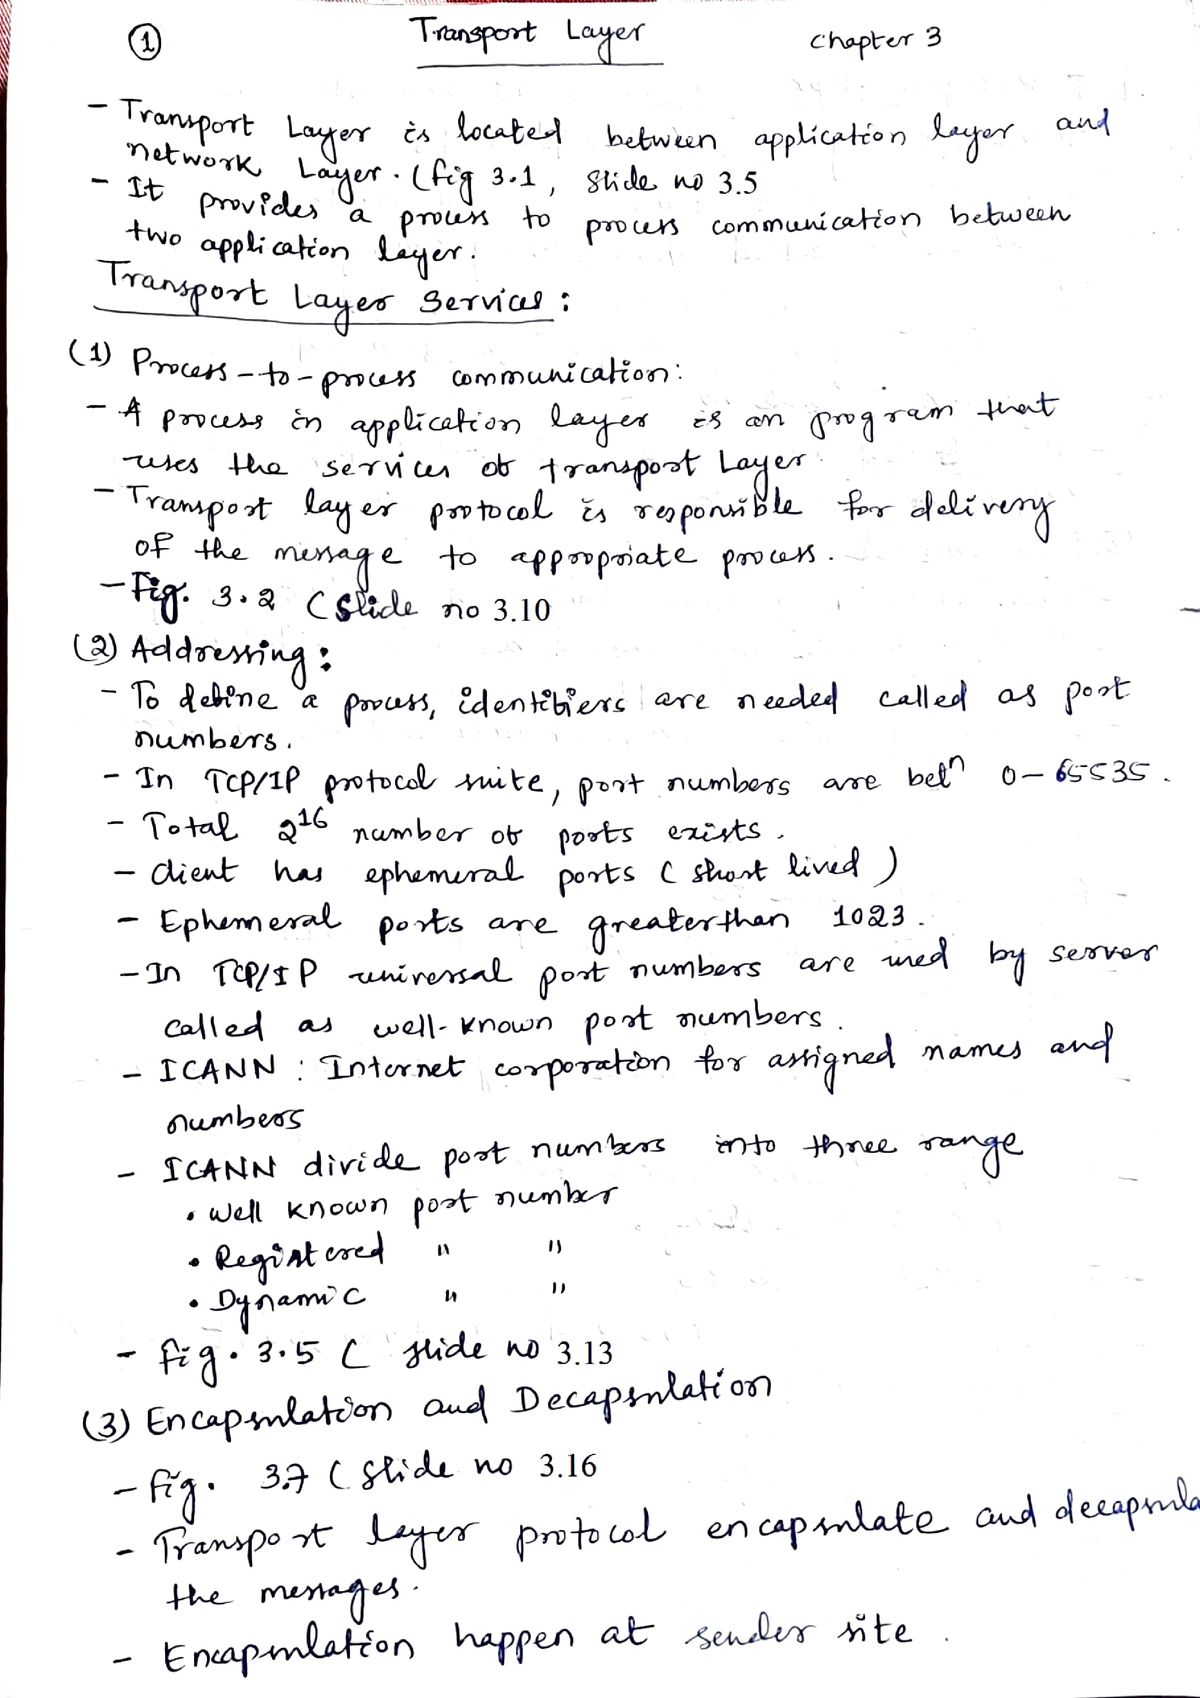 ① Transport Layer Chapter 3
- Transport Layer is located between application layer and
network Layer. (fig 3.1, Slide no 3.5
- It provides a process to process communication between
two application layer.
Transport Layer Services :
(1) Process-to-process communication:
- A process in application layer is an program that
uses the services of transport Layer.
- Transport layer protocol is responsible for delivery
of the message to appropriate process.
- Fig. 3.2 (Slide no 3.10
(2) Addressing :
- To define a process, identifiers are needed called as port
numbers.
- In TCP/IP protocol suite, port numbers are betⁿ 0-65535.
- Total 2¹⁶ number of ports exists.
- Client has ephemeral ports (short lived)
- Ephemeral ports are greater than 1023.
- In TCP/IP universal port numbers are used by server
called as well-known port numbers.
- ICANN : Internet corporation for assigned names and
numbers
- ICANN divide port numbers into three range
• Well known port number
• Registered " "
• Dynamic " "
- fig. 3.5 ( slide no 3.13
(3) Encapsulation and Decapsulation
- fig. 3.7 (Slide no 3.16
- Transport layer protocol encapsulate and decapsula
the messages.
- Encapsulation happen at sender site.